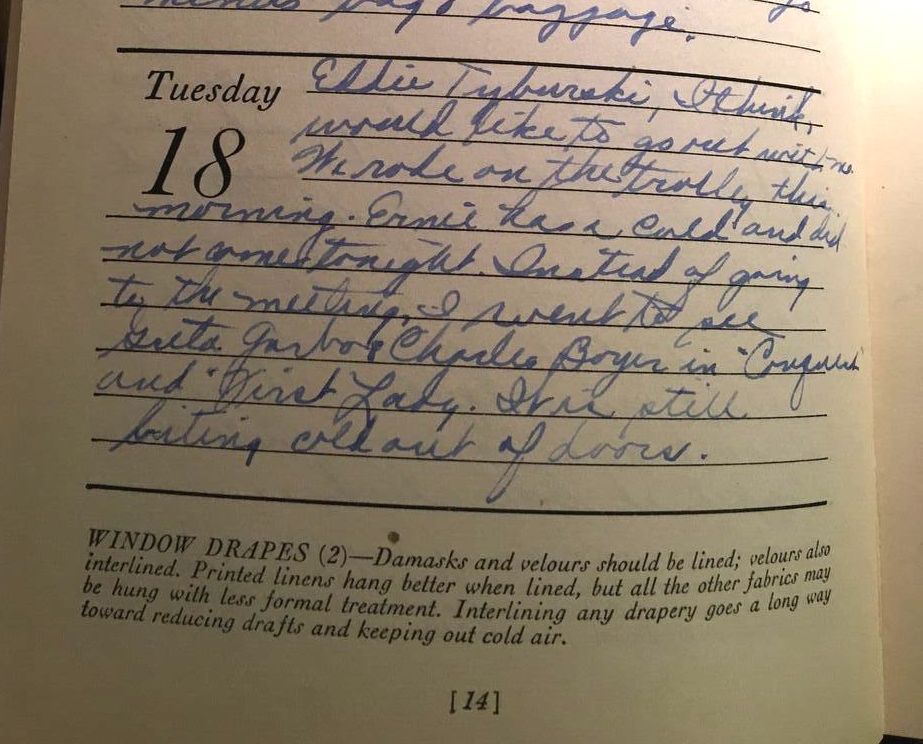 bag & baggage.
Tuesday
18
Eddie Tyburski, I think,
would like to go out with me.
We rode on the trolley this
morning. Ernie has a cold and did
not come tonight. Instead of going
to the meeting, I went to see
Greta Garbo & Charles Boyer in "Conquest"
and "First Lady. It is still
biting cold out of doors.
WINDOW DRAPES (2)—Damasks and velours should be lined; velours also
interlined. Printed linens hang better when lined, but all the other fabrics may
be hung with less formal treatment. Interlining any drapery goes a long way
toward reducing drafts and keeping out cold air.
[14]